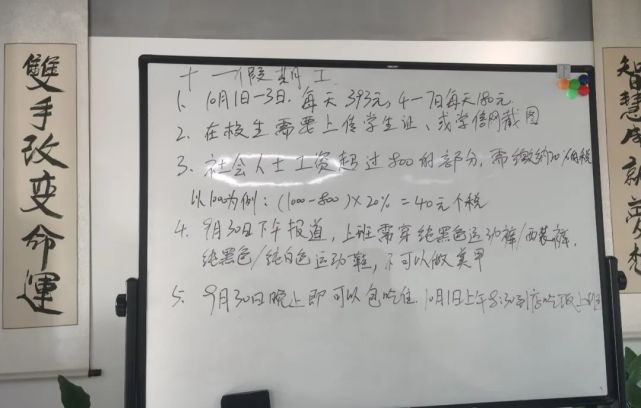 雙手改變命運
十一假期工
1. 10月1日-3日.每天393元,4-7日每天180元.
2. 在校生需要上传学生证、或学信网截图
3. 社会人士工资超过800的部分,需缴纳20%的税
以1000为例:(1000-800)×20%=40元个税
4. 9月30日下午报道,上班需穿纯黑色运动裤/西装裤.
纯黑色/纯白色运动鞋,不可以做美甲
5. 9月30日晚上即可以包吃住.10月1日上午8:30到店吃饭上班
智慧成就夢想